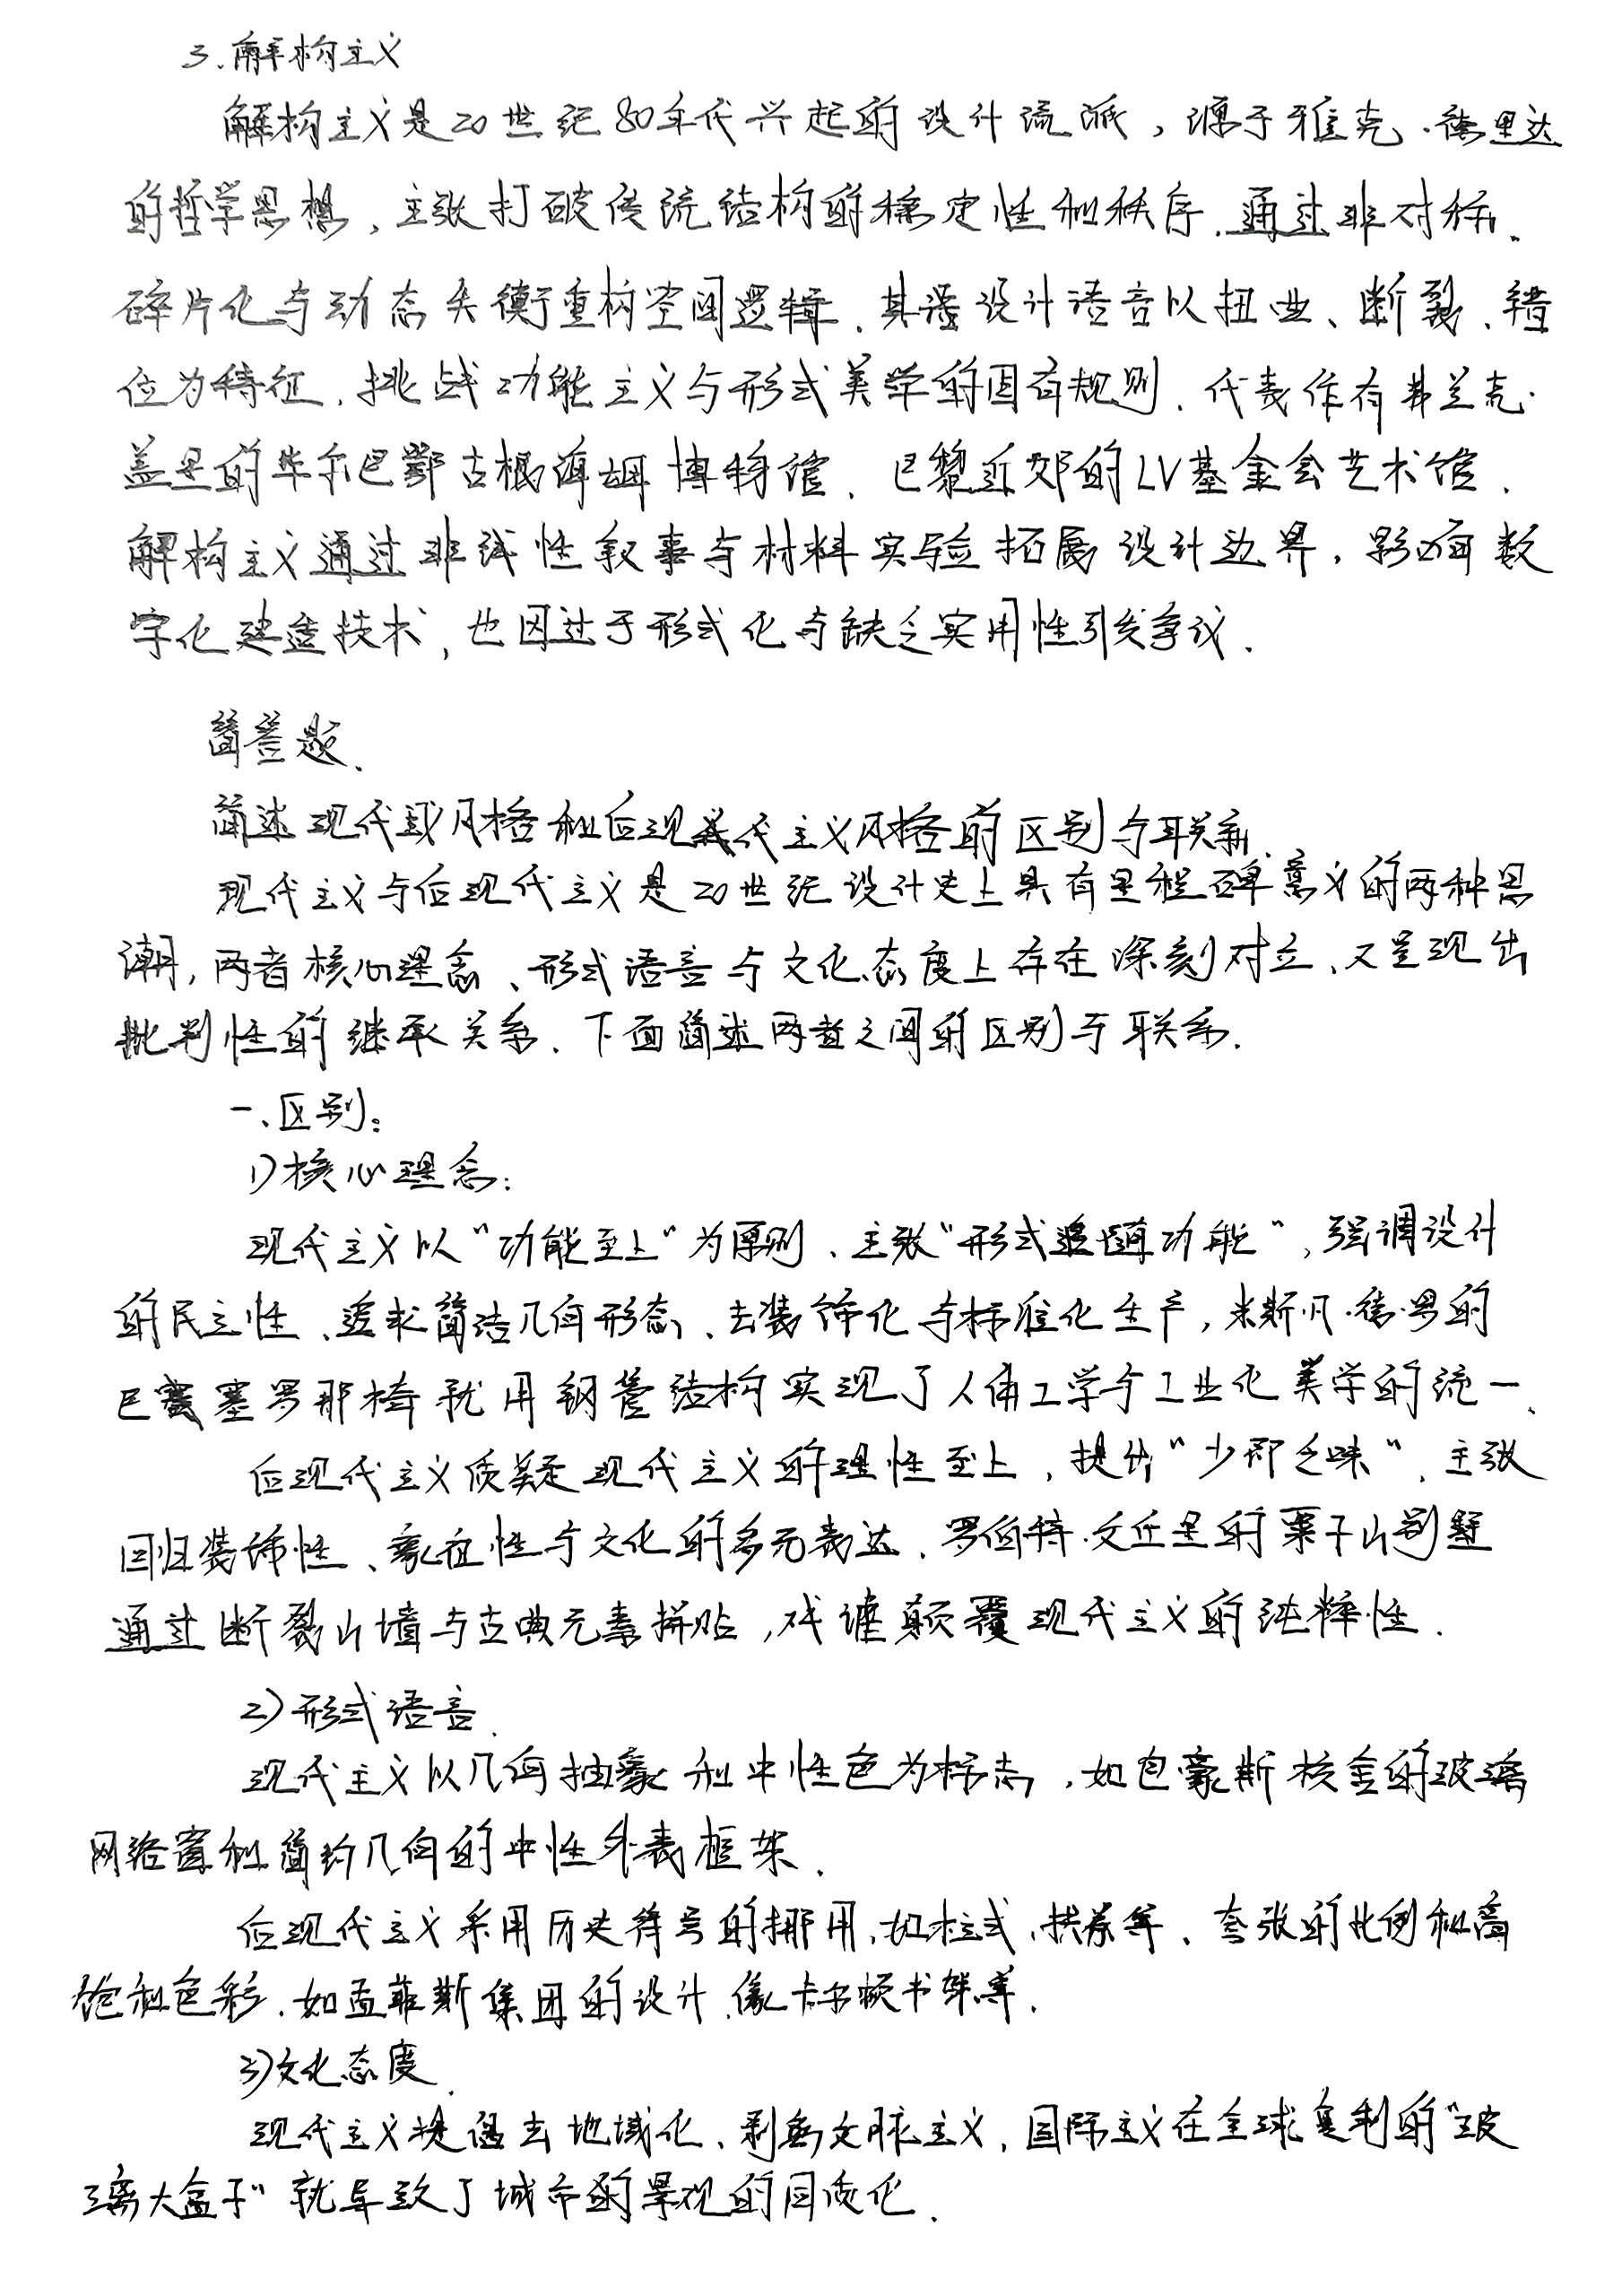 3.解构主义
解构主义是20世纪80年代兴起的设计流派,源于雅克·德里达
的哲学思想,主张打破传统结构的稳定性和秩序.通过非对称.
碎片化与动态失衡重构空间逻辑.其设计语言以扭曲、断裂、错
位为特征,挑战功能主义与形式美学的固有规则.代表作有弗兰克·
盖里的毕尔巴鄂古根海姆博物馆.巴黎近郊的LV基金会艺术馆.
解构主义通过非线性叙事与材料实验拓展设计边界,影响数
字化建造技术,也因过于形式化与缺乏实用性引发争议.
简答题.
简述现代或风格和后现代主义风格的区别与联系.
现代主义与后现代主义是20世纪设计史上具有里程碑意义的两种思
潮,两者核心理念、形式语言与文化态度上存在深刻对立、又呈现出
批判性的继承关系.下面简述两者之间的区别与联系.
一、区别:
1)核心理念:
现代主义以"功能至上"为原则、主张"形式追随功能",强调设计
的民主性、追求简洁几何形态、去装饰化与标准化生产,米斯凡·德·罗的
巴塞罗那椅就用钢管结构实现了人体工学与工业化美学的统一.
后现代主义质疑现代主义的理性至上,提出"少即乏味",主张
回归装饰性、象征性与文化的多元表达.罗伯特·文丘里的栗子山别墅
通过断裂山墙与古典元素拼贴,戏谑颠覆现代主义的纯粹性.
2)形式语言.
现代主义以几何抽象和中性色为标志,如包豪斯校舍的玻璃
网络窗和简约几何的中性外表框架.
后现代主义采用历史符号的挪用,如柱式,拱券等、夸张的比例和高
饱和色彩.如孟菲斯集团的设计.像卡尔顿书架等.
3)文化态度.
现代主义提倡去地域化、剥离文脉主义,国际主义在全球复制的"玻
璃大盒子"就导致了城市的景观的同质化.